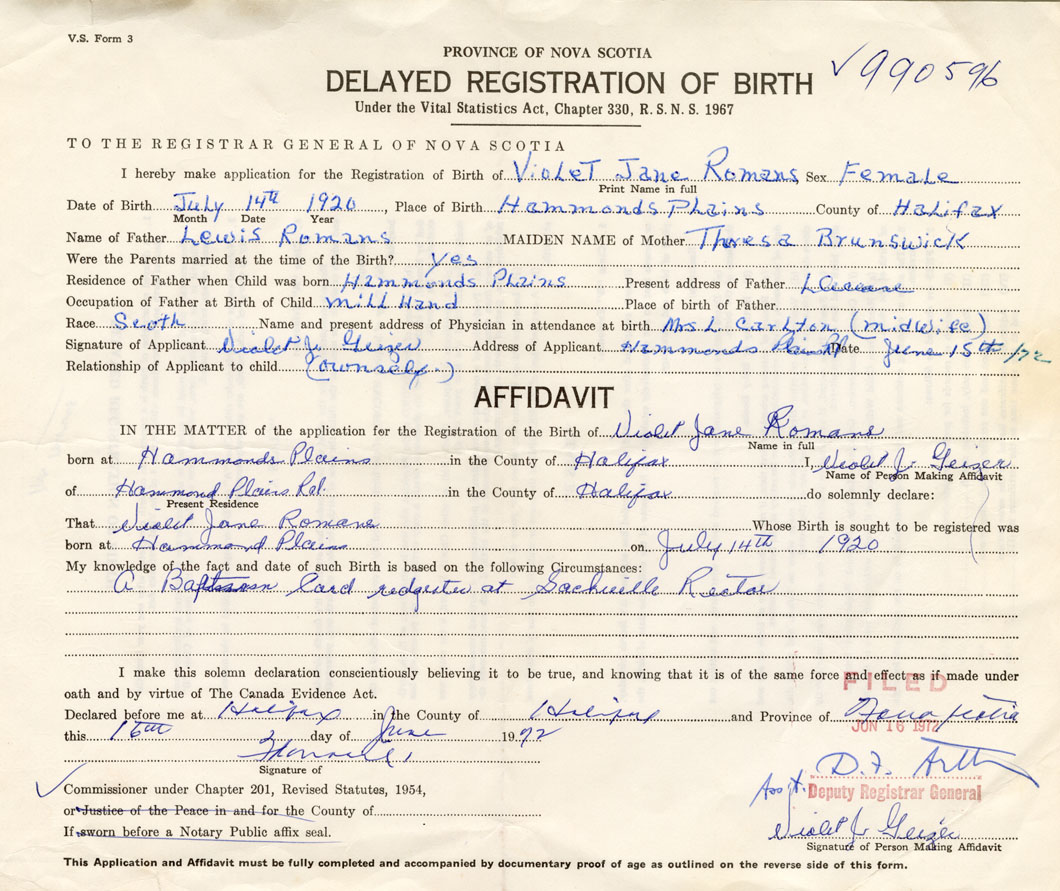 V.S. Form 3
PROVINCE OF NOVA SCOTIA
✓990596
DELAYED REGISTRATION OF BIRTH
Under the Vital Statistics Act, Chapter 330, R.S.N.S. 1967
TO THE REGISTRAR GENERAL OF NOVA SCOTIA
I hereby make application for the Registration of Birth of Violet Jane Romans Sex Female
Print Name in full
Date of Birth July 14th 1920, Place of Birth Hammonds Plains County of Halifax
Month Date Year
Name of Father Lewis Romans MAIDEN NAME of Mother Thresa Brunswick
Were the Parents married at the time of the Birth? Yes
Residence of Father when Child was born Hammonds Plains Present address of Father
Occupation of Father at Birth of Child Mill Hand Place of birth of Father
Race Scoth Name and present address of Physician in attendance at birth Mrs. L Carlton (midwife)
Signature of Applicant Violet J. Geizer Address of Applicant Hammonds Plains Rd Date June 15th /72
Relationship of Applicant to child (ownself.)
AFFIDAVIT
IN THE MATTER of the application for the Registration of the Birth of Violet Jane Romans
Name in full
born at Hammonds Plains in the County of Halifax I, Violet J. Geizer
Name of Person Making Affidavit
of Hammond Plains Rd. in the County of Halifax do solemnly declare:
Present Residence
That Violet Jane Romans Whose Birth is sought to be registered was
born at Hammond Plains on July 14th 1920
My knowledge of the fact and date of such Birth is based on the following Circumstances:
A card at Sackville Rector
I make this solemn declaration conscientiously believing it to be true, and knowing that it is of the same force and effect as if made under
oath and by virtue of The Canada Evidence Act.
FILED
Declared before me at Halifax in the County of Halifax and Province of Nova Scotia
JUN 16 1972
this 16th day of June 1972
Signature of
D.F. Arth
Commissioner under Chapter 201, Revised Statutes, 1954,
Ass't. Deputy Registrar General
or Justice of the Peace in and for the County of
If sworn before a Notary Public affix seal.
Violet J. Geizer
Signature of Person Making Affidavit
This Application and Affidavit must be fully completed and accompanied by documentary proof of age as outlined on the reverse side of this form.